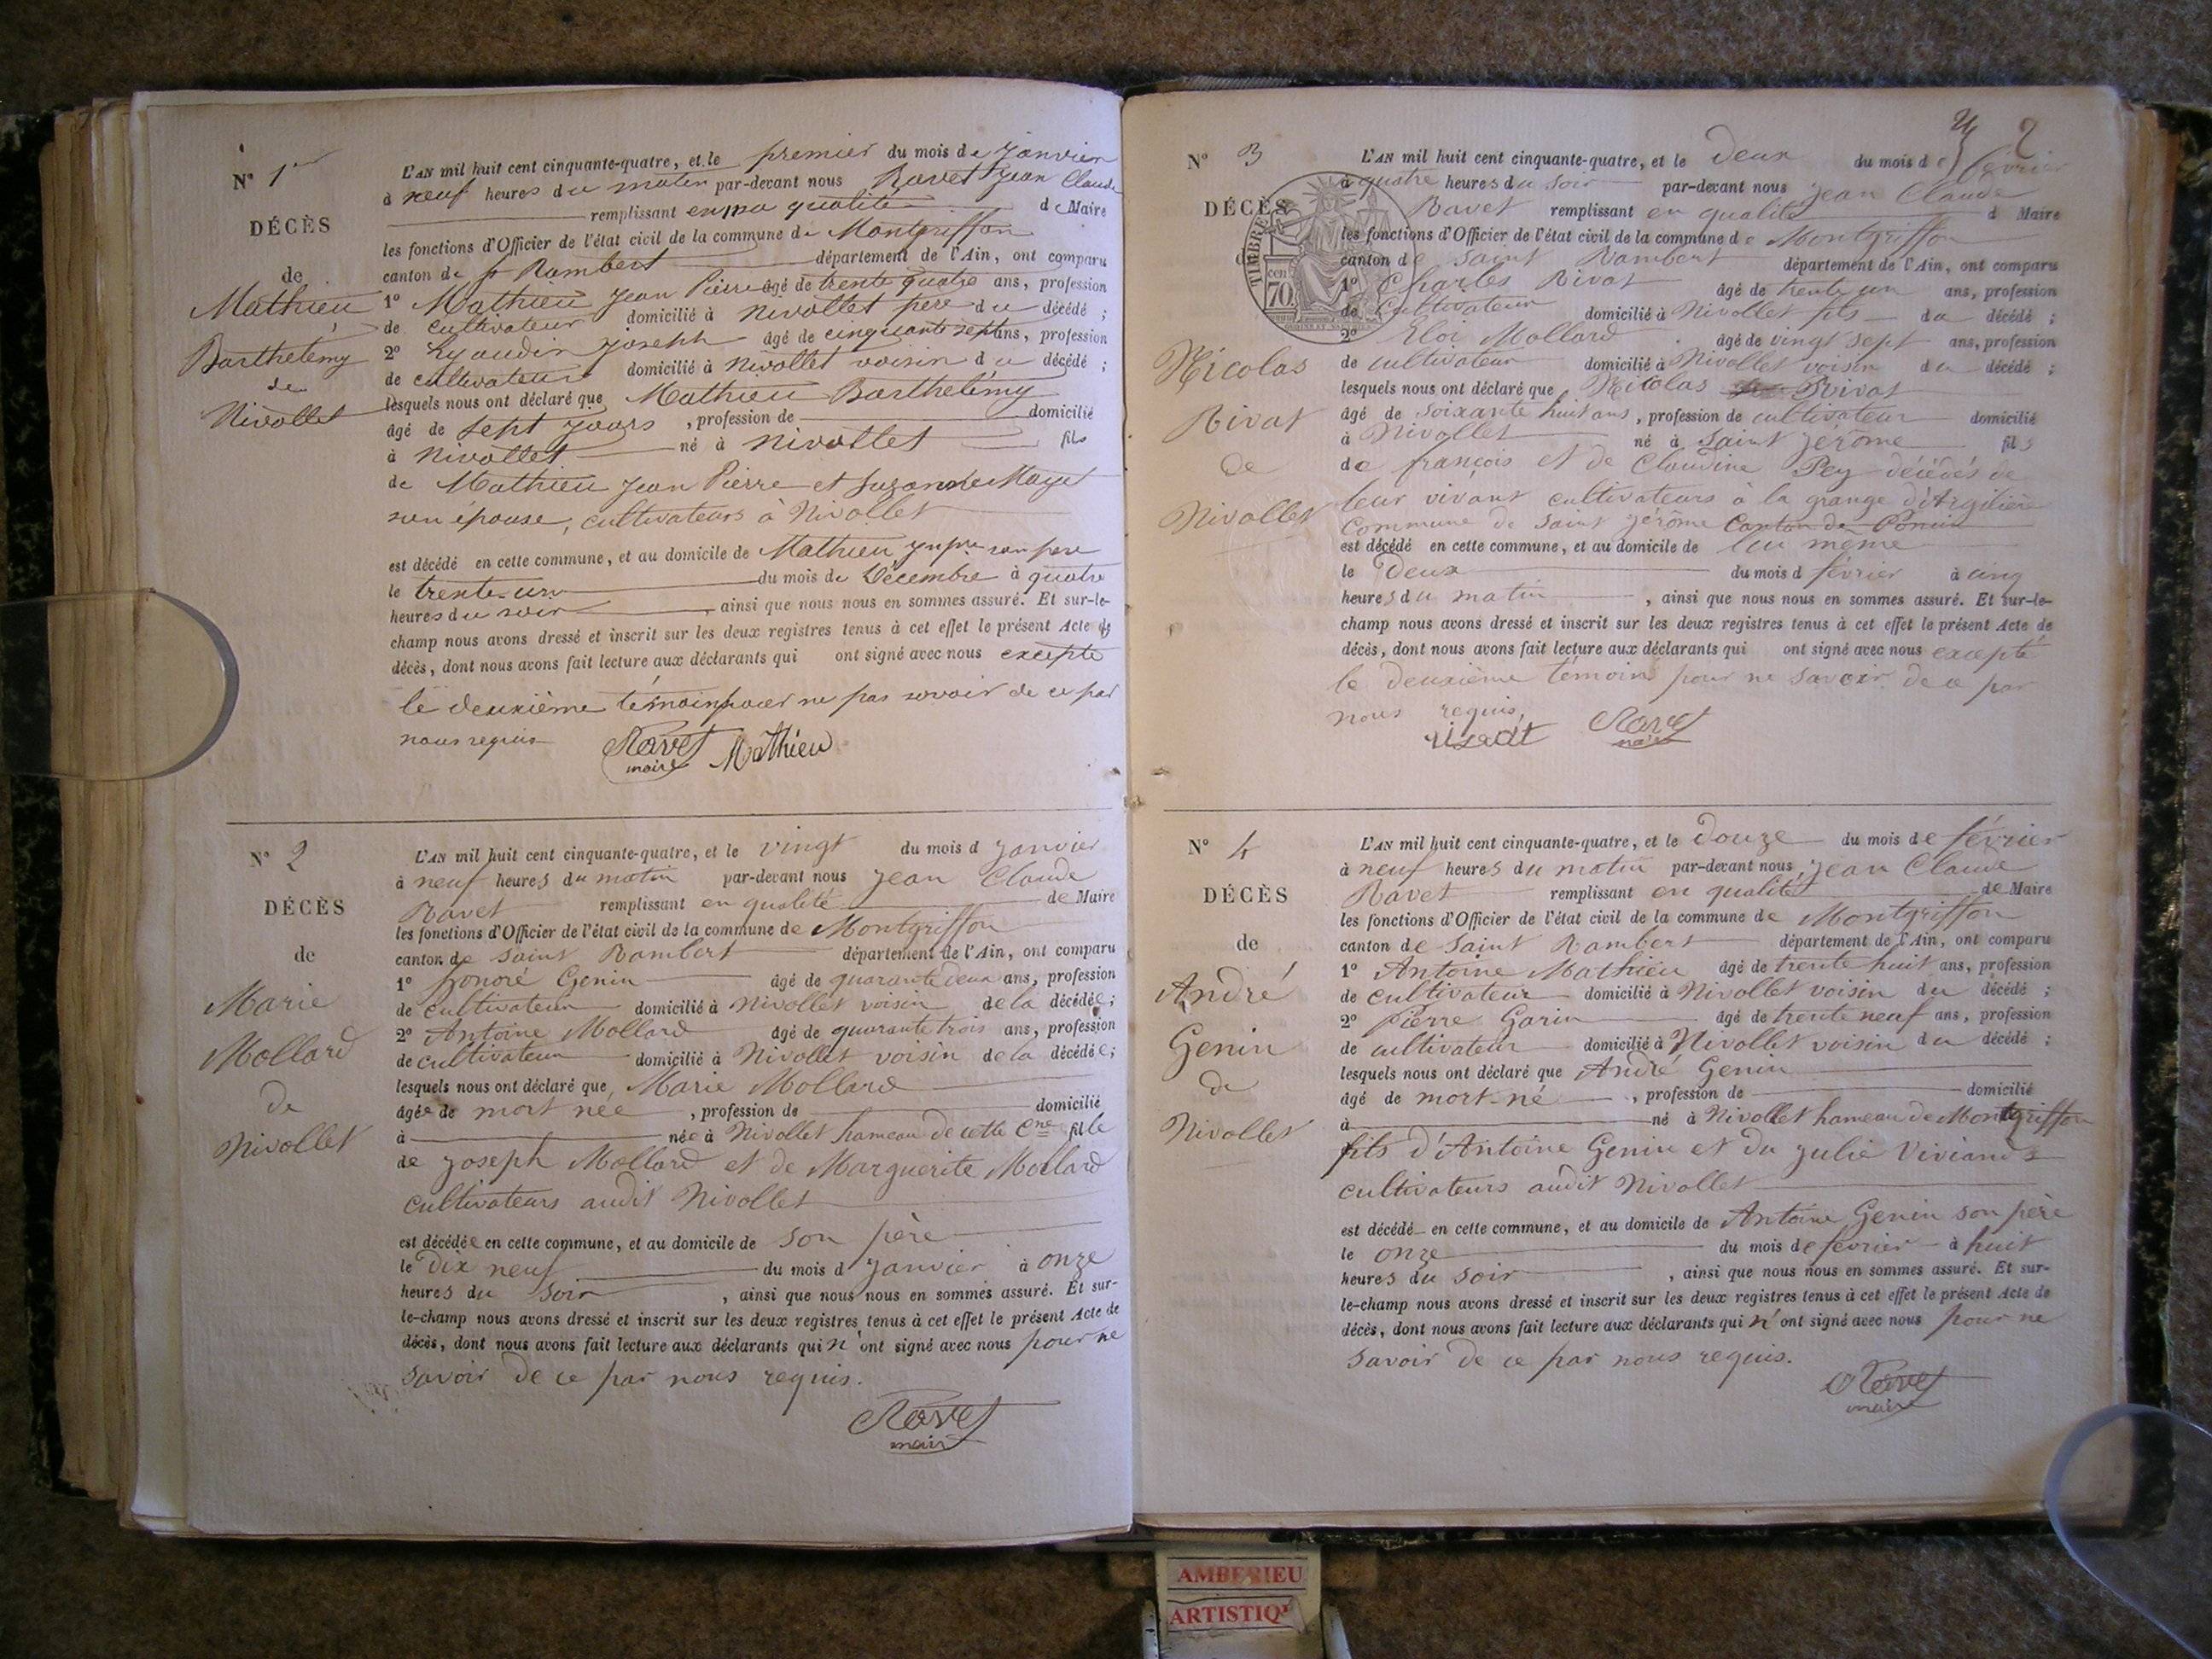 N° 1er
DÉCÈS
de
Mathieu
Barthelemy
de
Nivollet
L'AN mil huit cent cinquante-quatre, et le premier du mois de Janvier
à neuf heures du matin par-devant nous Ravet Jean Claude
remplissant en sa qualité de Maire
les fonctions d'Officier de l'état civil de la commune de Montgriffon
canton de St Rambert département de l'Ain, ont comparu
1° Mathieu Jean Pierre âgé de trente quatre ans, profession
de cultivateur domicilié à Nivollet pere du décédé ;
2° joseph âgé de cinquante sept ans, profession
de cultivateur domicilié à Nivollet voisin du décédé ;
lesquels nous ont déclaré que Mathieu Barthelemy
âgé de sept jours , profession de domicilié
à Nivollet né à Nivollet fils
de Mathieu Jean Pierre et Suzanne Mayet
son épouse, cultivateurs à Nivollet
est décédé en cette commune, et au domicile de Mathieu jn pre son pere
le trente-un du mois de Décembre à quatre
heures du soir , ainsi que nous nous en sommes assuré. Et sur-le-
champ nous avons dressé et inscrit sur les deux registres tenus à cet effet le présent Acte de
décès, dont nous avons fait lecture aux déclarants qui ont signé avec nous excepté
le deuxième témoin pour ne pas savoir de ce par
nous requis
Ravet Mathieu
maire
N° 2
DÉCÈS
de
Marie
Mollard
de
Nivollet
L'AN mil huit cent cinquante-quatre, et le vingt du mois d Janvier
à neuf heures du matin par-devant nous Jean Claude
Ravet remplissant en qualité de Maire
les fonctions d'Officier de l'état civil de la commune de Montgriffon
canton de Saint Rambert département de l'Ain, ont comparu
1° honoré Genin âgé de quarante deux ans, profession
de cultivateur domicilié à Nivollet voisin de la décédée ;
2° Antoine Mollard âgé de quarante trois ans, profession
de cultivateur domicilié à Nivollet voisin de la décédée ;
lesquels nous ont déclaré que Marie Mollard
âgée de mort née , profession de domicilié
à née à Nivollet hameau de cette Cne fille
de Joseph Mollard et de Marguerite Mollard
cultivateurs audit Nivollet
est décédée en cette commune, et au domicile de son père
le Dix neuf du mois d Janvier à onze
heures du Soir , ainsi que nous nous en sommes assuré. Et sur-
le-champ nous avons dressé et inscrit sur les deux registres tenus à cet effet le présent Acte de
décès, dont nous avons fait lecture aux déclarants qui n'ont signé avec nous pour ne
savoir de ce par nous requis.
Ravet
maire
2
N° 3
DÉCÈS
de
Nicolas
Rivat
de
Nivollet
TIMBRE
70 cen
L'AN mil huit cent cinquante-quatre, et le Deux du mois de février
à quatre heures du soir par-devant nous Jean Claude
Ravet remplissant en qualité d Maire
les fonctions d'Officier de l'état civil de la commune de Montgriffon
canton de Saint Rambert département de l'Ain, ont comparu
1° Charles Rivat âgé de trente un ans, profession
de Cultivateur domicilié à Nivollet fils du décédé ;
2° Eloi Mollard âgé de vingt sept ans, profession
de cultivateur domicilié à Nivollet voisin du décédé ;
lesquels nous ont déclaré que Nicolas Rivat
âgé de soixante huit ans , profession de cultivateur domicilié
à Nivollet né à Saint Jérôme fils
de françois et de Claudine Pey décédés de
leur vivant cultivateurs à la grange d'Argilière
Commune de Saint Jérôme Canton de Poncin
est décédé en cette commune, et au domicile de lui même
le Deux du mois d février à cinq
heures du matin , ainsi que nous nous en sommes assuré. Et sur-le-
champ nous avons dressé et inscrit sur les deux registres tenus à cet effet le présent Acte de
décès, dont nous avons fait lecture aux déclarants qui ont signé avec nous excepté
le deuxième témoin pour ne savoir de ce par
nous requis,
Ravet
maire
N° 4
DÉCÈS
de
André
Genin
de
Nivollet
L'AN mil huit cent cinquante-quatre, et le Douze du mois de février
à neuf heures du matin par-devant nous, Jean Claude
Ravet remplissant en qualité de Maire
les fonctions d'Officier de l'état civil de la commune de Montgriffon
canton de Saint Rambert département de l'Ain, ont comparu
1° Antoine Mathieu âgé de trente huit ans, profession
de cultivateur domicilié à Nivollet voisin du décédé ;
2° Pierre Garin âgé de trente neuf ans, profession
de cultivateur domicilié à Nivollet voisin du décédé ;
lesquels nous ont déclaré que André Genin
âgé de mort-né , profession de domicilié
à né à Nivollet hameau de Montgriffon
fils d'Antoine Genin et du Julie Viviand
cultivateurs audit Nivollet
est décédé en cette commune, et au domicile de Antoine Genin son père
le onze du mois de février à huit
heures du soir , ainsi que nous nous en sommes assuré. Et sur-
le-champ nous avons dressé et inscrit sur les deux registres tenus à cet effet le présent Acte de
décès, dont nous avons fait lecture aux déclarants qui n'ont signé avec nous pour ne
savoir de ce par nous requis.
Ravet
maire
AMBERIEU
ARTISTIQU